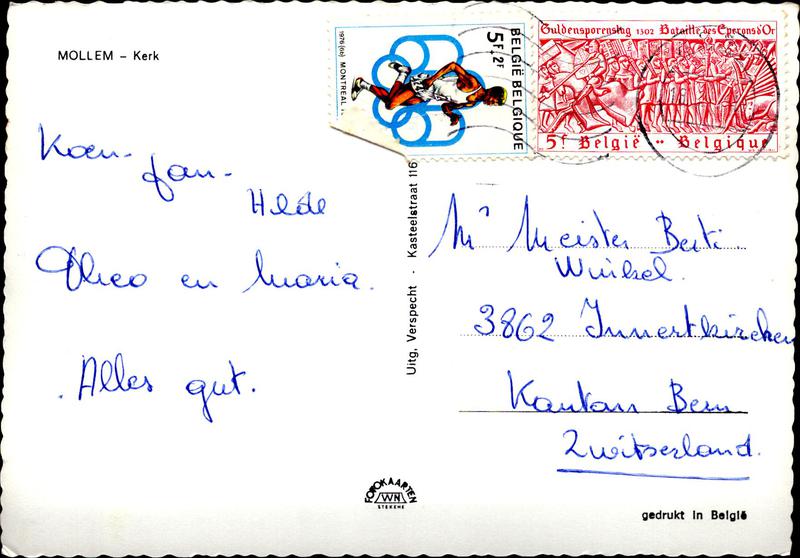 MOLLEM – Kerk
Koen - Jan -
Hilde
Theo en Maria.
Alles gut.
FOTOKAARTEN
WN
STEKENE
Uitg, Verspecht · Kasteelstraat 116
1976 (10) MONTREAL
5F+2F
BELGIË BELGIQUE
Guldensporenslag 1302 Bataille des Eperons d'Or
5F België •• Belgique
Mr Meister Berti
Winkel.
3862 Innertkirchen
Kanton Bern
Zwitserland.
gedrukt in België